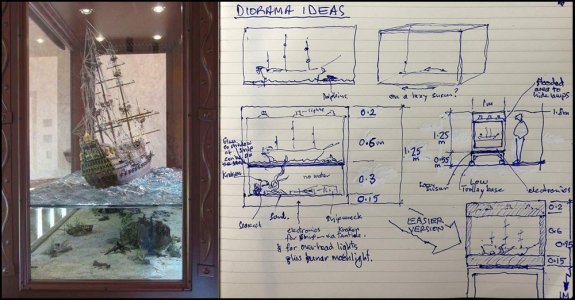 DIORAMA IDEAS
Dolphins
on a lazy susan?
lights
0.2
0.6m
0.3
0.15
1.25
m
Kraken
no water
Seabed
Sand.
Shipwreck
electronics Kraken
for Ship
& for overhead lights
plus lunar moonlight.
1m
area to
hide lamps
1.8m
1.25
m
0.55
m
Susan
Low
Trolley base
electronics
EASIER
VERSION
0.2
0.6
0.95
0.15
1M